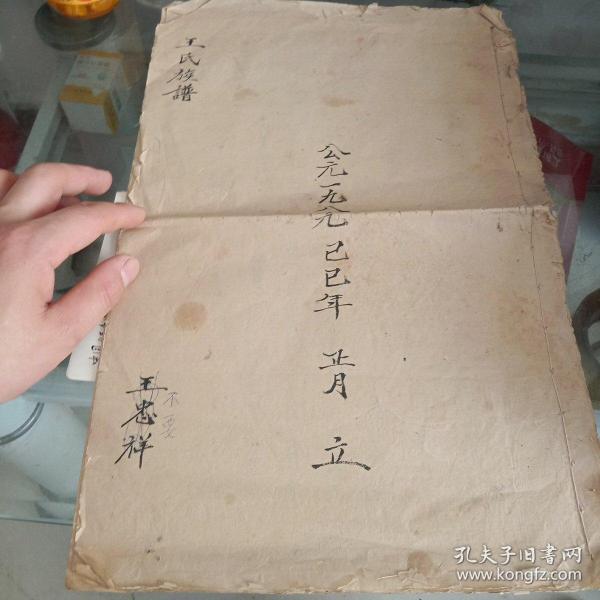 王氏族譜
公元一九八九 己巳年 正月 立
王忠祥
不要
孔夫子旧书网
www.kongfz.com